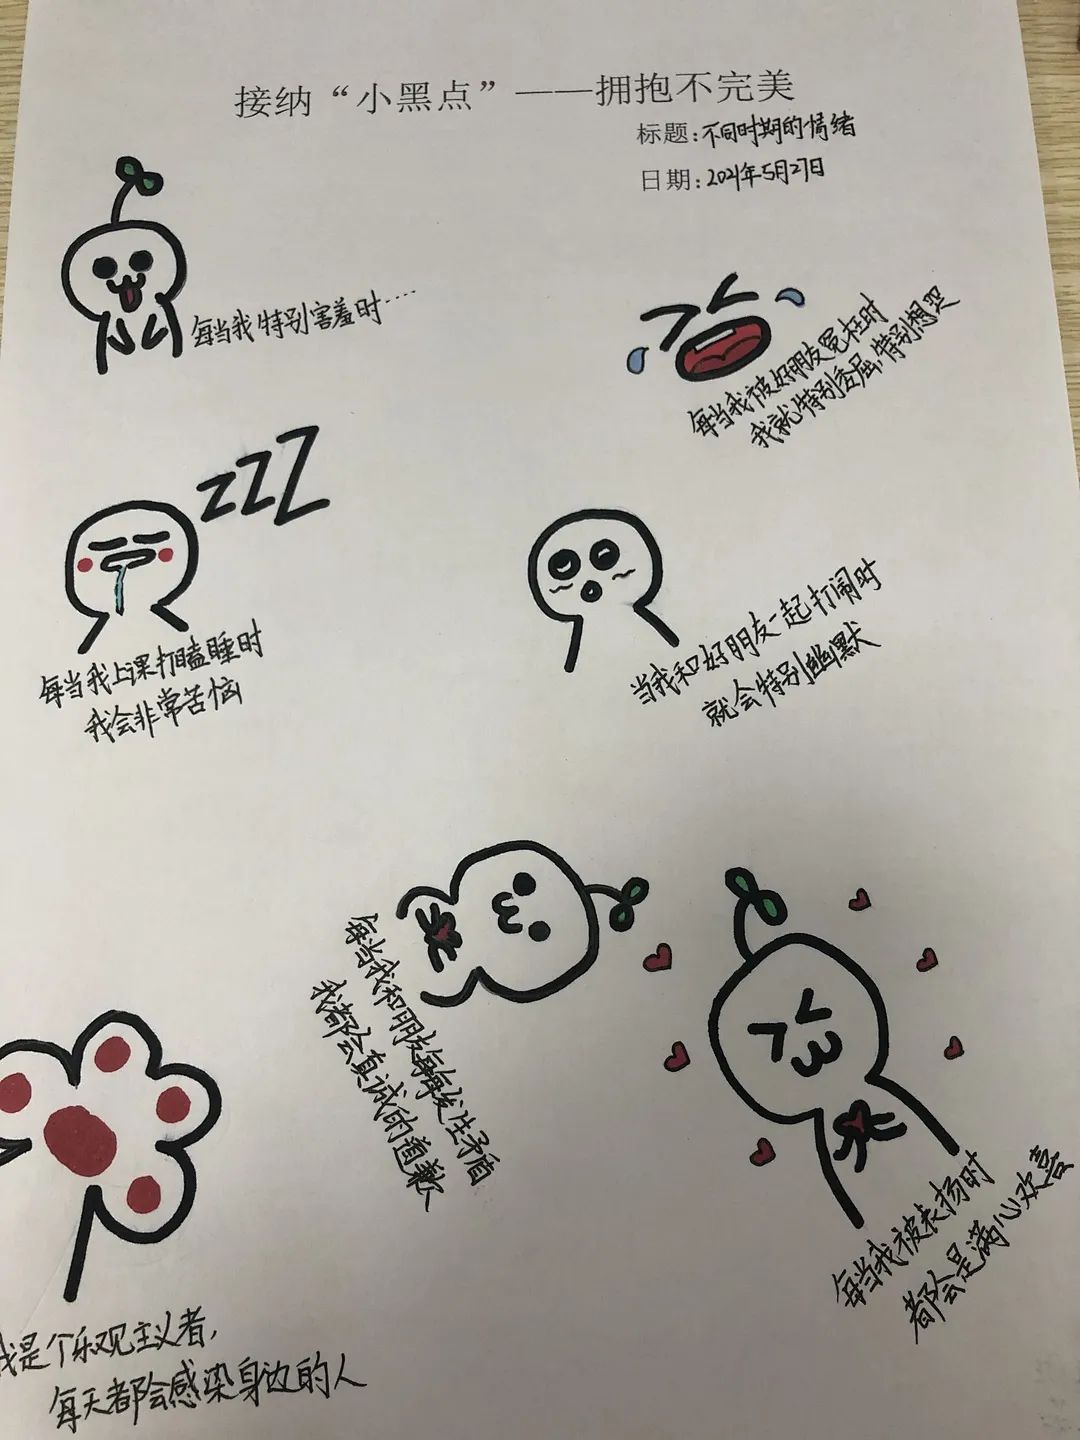 接纳“小黑点”——拥抱不完美
标题:不同时期的情绪
日期:2021年5月27日
每当我特别害羞时……
每当我被好朋友冤枉时
我就特别委屈,特别想哭
zZZ
每当我上课打瞌睡时
我会非常苦恼
当我和好朋友一起打闹时
就会特别幽默
每当我和朋友每每发生矛盾
我都会真诚的道歉
每当我被表扬时
都会是满心欢喜
我是个乐观主义者,
每天都会感染身边的人